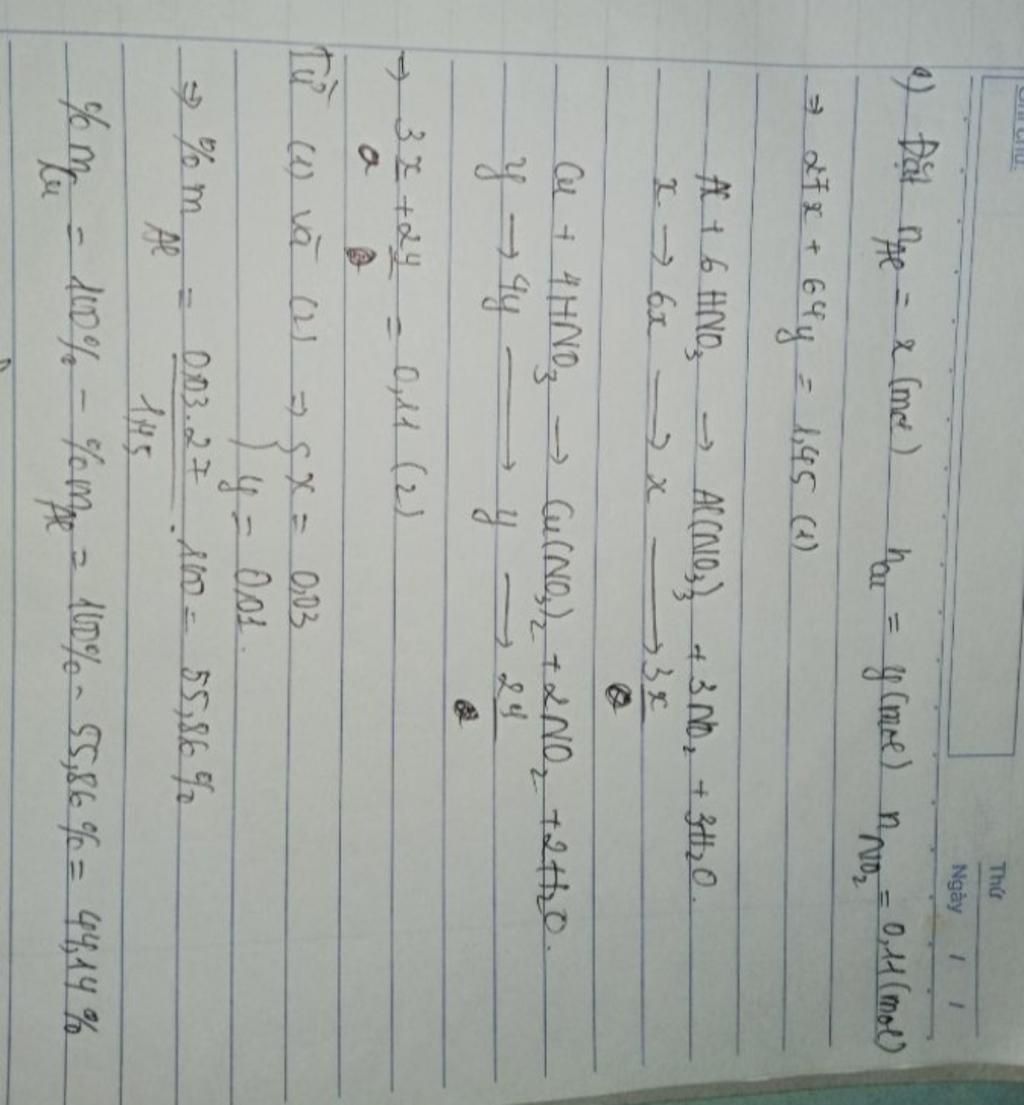 Thứ
Ngày / /
a) Đặt nAl = x (mol) nCu = y (mol) nNO2 = 0,11 (mol)
⇒ 27x + 64y = 1,45 (1)
Al + 6HNO3 → Al(NO3)3 + 3NO2 + 3H2O.
x → 6x → x → 3x
Cu + 4HNO3 → Cu(NO3)2 + 2NO2 + 2H2O.
y → 4y → y → 2y
→ 3x + 2y = 0,11 (2)
Từ (1) và (2) ⇒ { x = 0,03
y = 0,01.
⇒ % mAl = 0,03.27 / 1,45 . 100 = 55,86 %
% mCu = 100% - % mAl = 100% - 55,86 % = 44,14 %